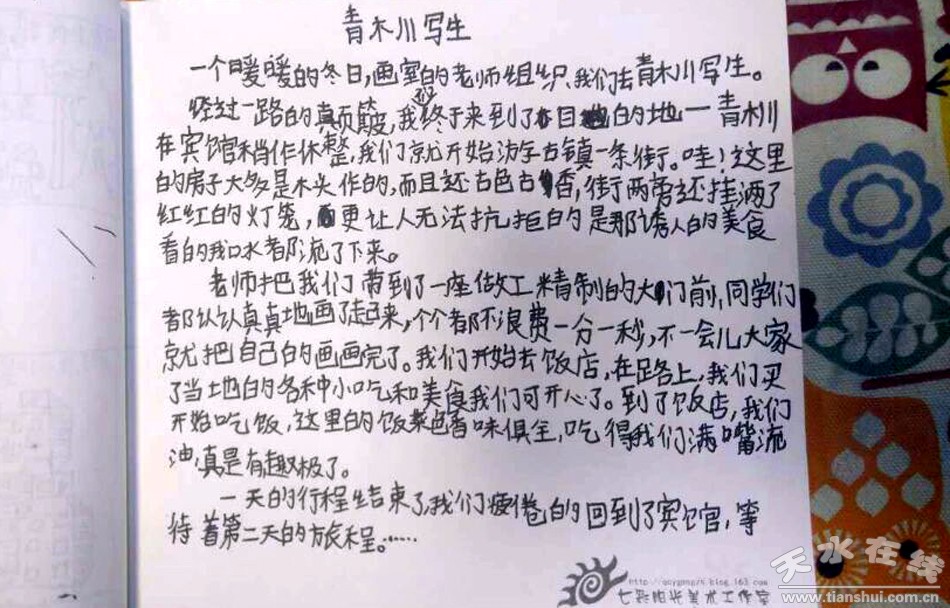 青木川写生
一个暖暖的冬日,画室的老师组织,我们去青木川写生。
经过一路的颠簸,我们终于来到了目的地——青木川
在宾馆稍作休整,我们就开始访学古镇一条街。哇!这里
的房子大多是木头作的,而且还古色古香,街两旁还挂满了
红红的灯笼,更让人无法抗拒的是那诱人的美食
看的我口水都流了下来。
老师把我们带到了一座做工精制的大门前,同学们
都认认真真地画了起来,个个都不浪费一分一秒,不一会儿大家
就把自己的画画完了。我们开始去饭店,在路上,我们买
了当地的各种小吃和美食我们可开心了。到了饭店,我们
开始吃饭,这里的饭菜色香味俱全,吃得我们满嘴流
油,真是有趣极了。
一天的行程结束了,我们疲倦的回到了宾馆,等
待着第二天的旅程。……
http://qcygmsgzs.blog.163.com
七彩阳光美术工作室
天水在线
www.tianshui.com.cn